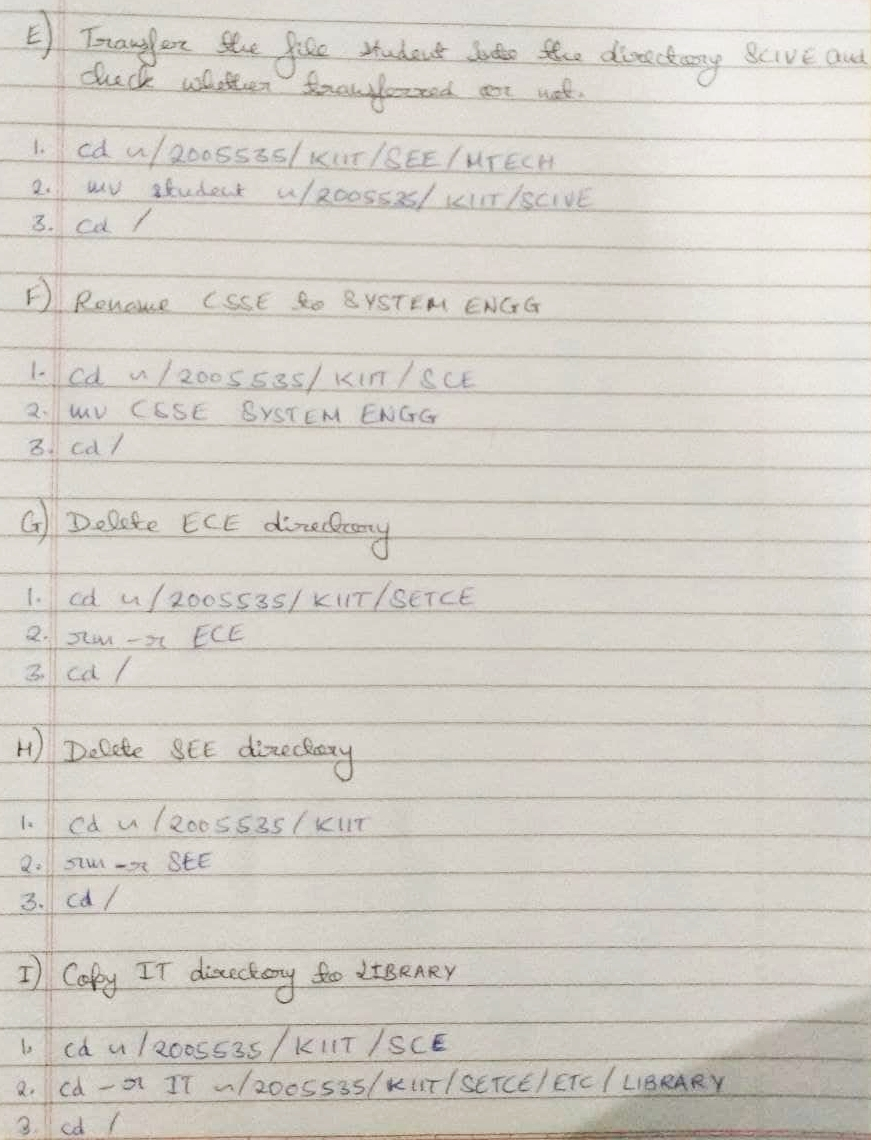 E) Transfer the file student into the directory SCIVE and
check whether transferred or not.
1. cd u/2005535/KIIT/SEE/MTECH
2. mv student u/2005535/KIIT/SCIVE
3. cd /
F) Rename CSSE to SYSTEM ENGG
1. cd u/2005535/KIIT/SCE
2. mv CSSE SYSTEM ENGG
3. cd /
G) Delete ECE directory
1. cd u/2005535/KIIT/SETCE
2. rm -r ECE
3. cd /
H) Delete SEE directory
1. cd u/2005535/KIIT
2. rm -r SEE
3. cd /
I) Copy IT directory to LIBRARY
1. cd u/2005535/KIIT/SCE
2. cd -r IT u/2005535/KIIT/SETCE/ETC/LIBRARY
3. cd /